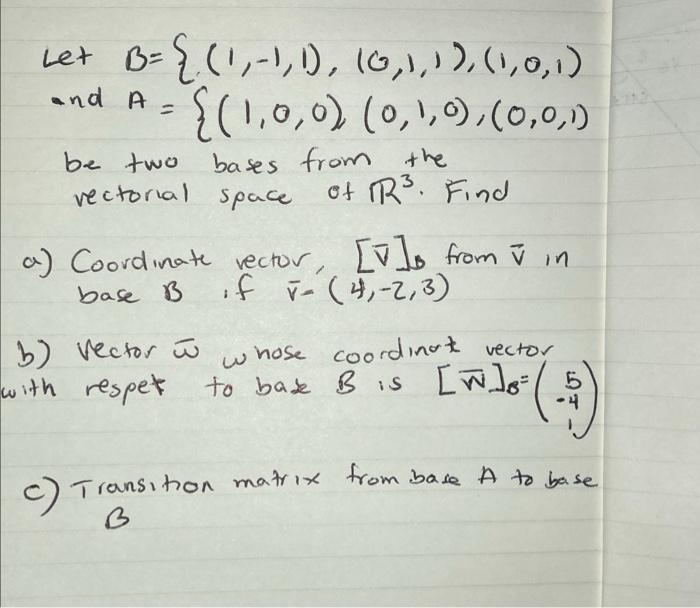 Let B={(1,-1,1), (0,1,1),(1,0,1)
and A = {(1,0,0), (0,1,0),(0,0,1)
be two bases from the
vectorial space of ℝ³. Find
a) Coordinate vector, [v̄]B from v̄ in
base B if v̄=(4,-2,3)
b) Vector w̄ whose coordinat vector
with respet to base B is [w̄]B=(5
-4
1)
c) Transition matrix from base A to base
B